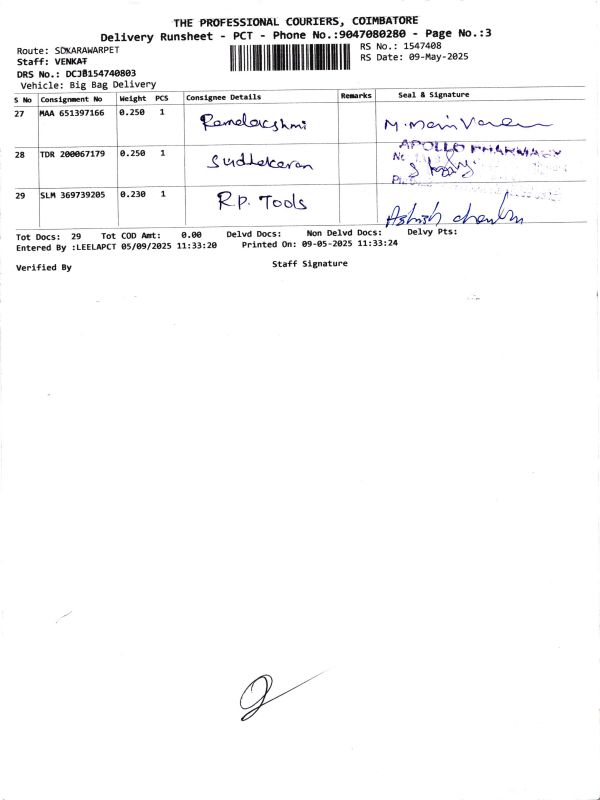 THE PROFESSIONAL COURIERS, COIMBATORE
Delivery Runsheet - PCT - Phone No.:9047080280 - Page No.:3
Route: SUKARAWARPET
RS No.: 1547408
Staff: VENKAT
RS Date: 09-May-2025
DRS No.: DCJB154740803
Vehicle: Big Bag Delivery
S No Consignment No Weight PCS Consignee Details Remarks Seal & Signature
27 MAA 651397166 0.250 1 Ramalakshmi
28 TDR 200067179 0.250 1 Sudhakaran APOLLO PHARMACY
29 SLM 369739205 0.230 1 R.P. Tools Ashish
Tot Docs: 29 Tot COD Amt: 0.00 Delvd Docs: Non Delvd Docs: Delvy Pts:
Entered By :LEELAPCT 05/09/2025 11:33:20 Printed On: 09-05-2025 11:33:24
Verified By Staff Signature